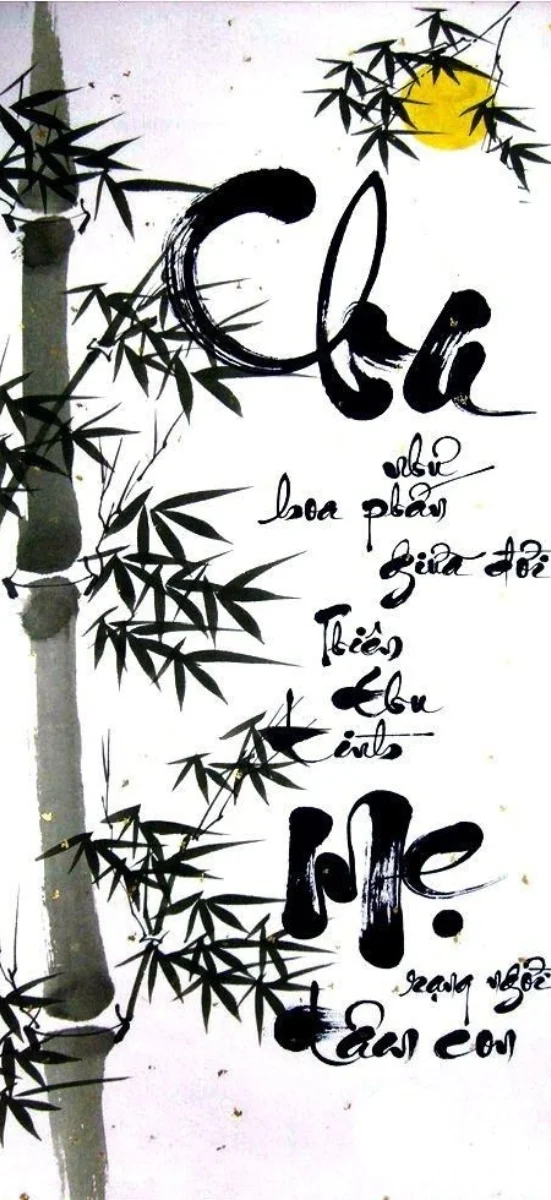 Cha
như
hoa phấn
giữa đời
Thiên
Thu
tình
Mẹ
rạng ngời
tâm con